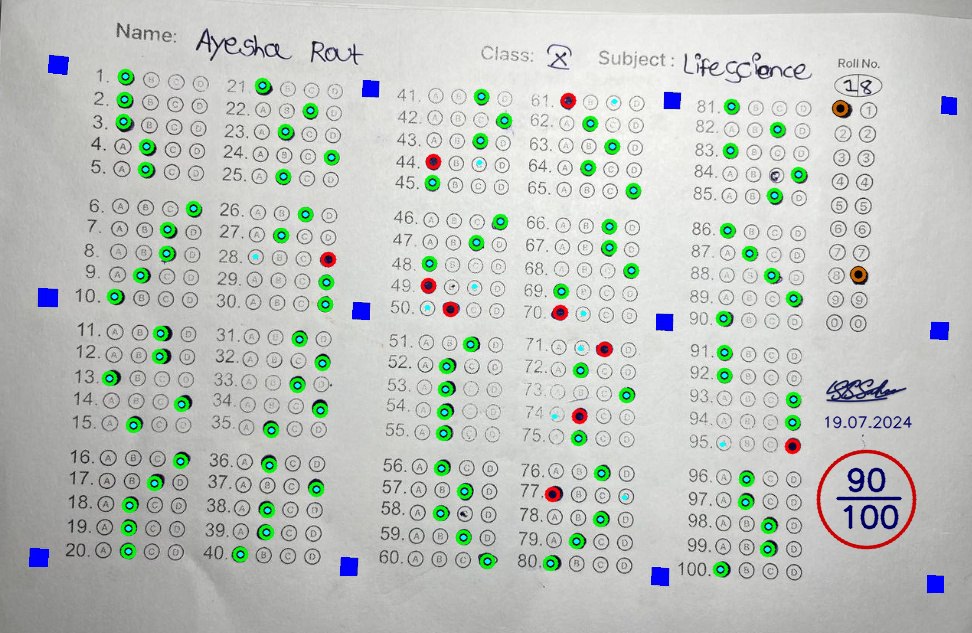 Name: Ayesha Rout
Class: X Subject: Lifescience
Roll No.
18
1. B C D
2. B C D
3. B C D
4. A C D
5. A C D
6. A B C
7. A B D
8. A B D
9. A C D
10. B C D
11. A B D
12. A B D
13. B C D
14. A B C
15. A C D
16. A B C
17. A B D
18. A C D
19. A C D
20. A C D
21. B C D
22. A B D
23. A C D
24. A B C
25. A C D
26. A B D
27. A C D
28. B C
29. A B C
30. A B C
31. A B D
32. A B C
33. A B D
34. A B C
35. A C D
36. A C D
37. A B C
38. A C D
39. A C D
40. B C D
41. A B D
42. A B C
43. A B D
44. B D
45. B C D
46. A B C
47. A B D
48. B C D
49. B D
50. C D
51. A B D
52. A C D
53. A C D
54. A C D
55. A C D
56. A C D
57. A B D
58. A D
59. A B D
60. A B C
61. B D
62. A C D
63. A B D
64. A C D
65. A B C
66. A B D
67. A B D
68. A B C
69. B C D
70. C D
71. A D
72. A C D
73. A B C
74. C D
75. A C D
76. A B D
77. B C
78. A B D
79. A C D
80. B C D
81. B C D
82. A B D
83. B C D
84. A B
85. A B D
86. B C D
87. A C D
88. A B D
89. A B C
90. B C D
91. B C D
92. B C D
93. A B C
94. A B C
95. B C
96. A C D
97. A C D
98. A B D
99. A B D
100. B C D
1
2 2
3 3
4 4
5 5
6 6
7 7
8
9 9
0 0
19.07.2024
90
100